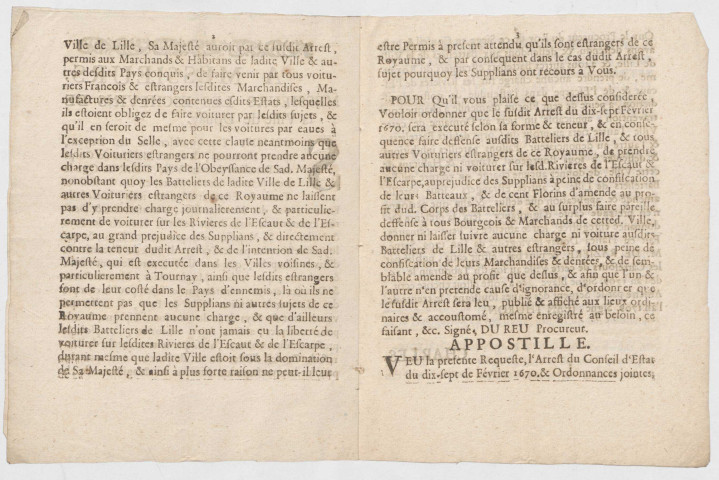 2
Ville de Lille, Sa Majesté auroit par ce susdit Arrest,
permis aux Marchands & Habitans de ladite Ville & au-
tres desdits Pays conquis, de faire venir par tous voitu-
riers François & estrangers lesdites Marchandises, Ma-
nufactures & denrées contenues esdits Estats, lesquelles
ils estoient obligez de faire voiturer par lesdits sujets, &
qu'il en seroit de mesme pour les voitures par eaues à
l'exception du Selle, avec cette clause neantmoins que
lesdits Voituriers estrangers ne pourront prendre aucune
charge dans lesdits Pays de l'Obeyssance de Sad. Majesté,
nonobstant quoy les Batteliers de ladite Ville de Lille &
autres Voituriers estrangers de ce Royaume ne laissent
pas d'y prendre charge journalierement, & particulie-
rement de voiturer sur les Rivieres de l'Escaut & de l'Es-
carpe, au grand prejudice des Supplians, & directement
contre la teneur dudit Arrest, & de l'intention de Sad.
Majesté, qui est executée dans les Villes voisines, &
particulierement à Tournay, ainsi que lesdits estrangers
font de leur costé dans le Pays d'ennemis, là où ils ne
permettent pas que les Supplians ni autres sujets de ce
Royaume prennent aucune charge, & que d'ailleurs
lesdits Batteliers de Lille n'ont jamais eu la liberté de
voiturer sur lesdites Rivieres de l'Escaut & de l'Escarpe,
durant mesme que ladite Ville estoit sous la domination
de Sa Majesté, & ainsi à plus forte raison ne peut-il leur
3
estre Permis à present attendu qu'ils sont estrangers de ce
Royaume, & par consequent dans le cas dudit Arrest,
sujet pourquoy les Supplians ont recours à Vous.
POUR Qu'il vous plaise ce que dessus considerée,
Vouloir ordonner que le susdit Arrest du dix-sept Février
1670. sera executé selon sa forme & teneur, & en conse-
quence faire deffense ausdits Batteliers de Lille, & tous
autres Voituriers estrangers de ce Royaume, de prendre
aucune charge ni voiturer sur lesd. Rivieres de l'Escaut &
l'Escarpe, au prejudice des Supplians à peine de confiscation
de leurs Batteaux, & de cent Florins d'amende au pro-
fit dud. Corps des Batteliers, & au surplus faire pareille
deffense à tous Bourgeois & Marchands de cetted. Ville,
donner ni laisser suivre aucune charge ni voiture ausdits
Batteliers de Lille & autres estrangers, sous peine de
confiscation de leurs Marchandises & denrées, & de sem-
blable amende au profit que dessus, & afin que l'un &
l'autre n'en pretende cause d'ignorance, d'ordonner que
le susdit Arrest sera leu, publié & affiché aux lieux ordi-
naires & accoustomé, mesme enregistré au besoin, ce
faisant, &c. Signé, DU REU Procureur.
APPOSTILLE.
VEU la presente Requeste, l'Arrest du Conseil d'Estat
du dix-sept de Février 1670. & Ordonnances jointes,